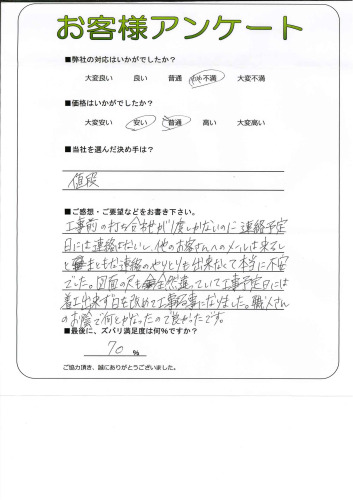 お客様アンケート
■弊社の対応はいかがでしたか？
大変良い 良い 普通 やや不満 大変不満
■価格はいかがでしたか？
大変安い 安い 普通 高い 大変高い
■当社を選んだ決め手は？
値段
■ご感想・ご要望などをお書き下さい。
工事前の打ち合わせが1度しかないのに連絡予定
日には連絡はないし、他のお客さんへのメールは来るし
と まともな連絡のやりとりも出来なくて本当に不安
でした。図面の尺も全然違っていて工事予定日には
着工出来ず日を改めて工事になりました。職人さん
のお陰で何とかなったので良かったです。
■最後に、ズバリ満足度は何％ですか？
70 %
ご協力頂き、誠にありがとうございました。